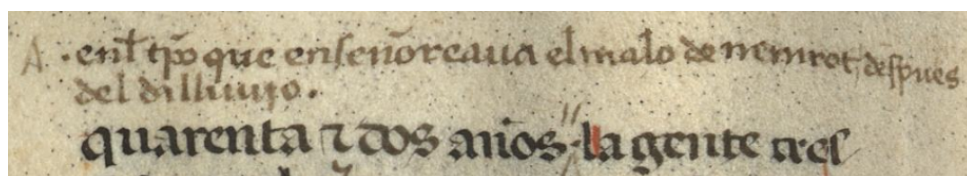 A · enl tpo que enseñoreaua el malo de nemrot despues
del dilluuio.
quarenta ⁊ dos años la gente cres